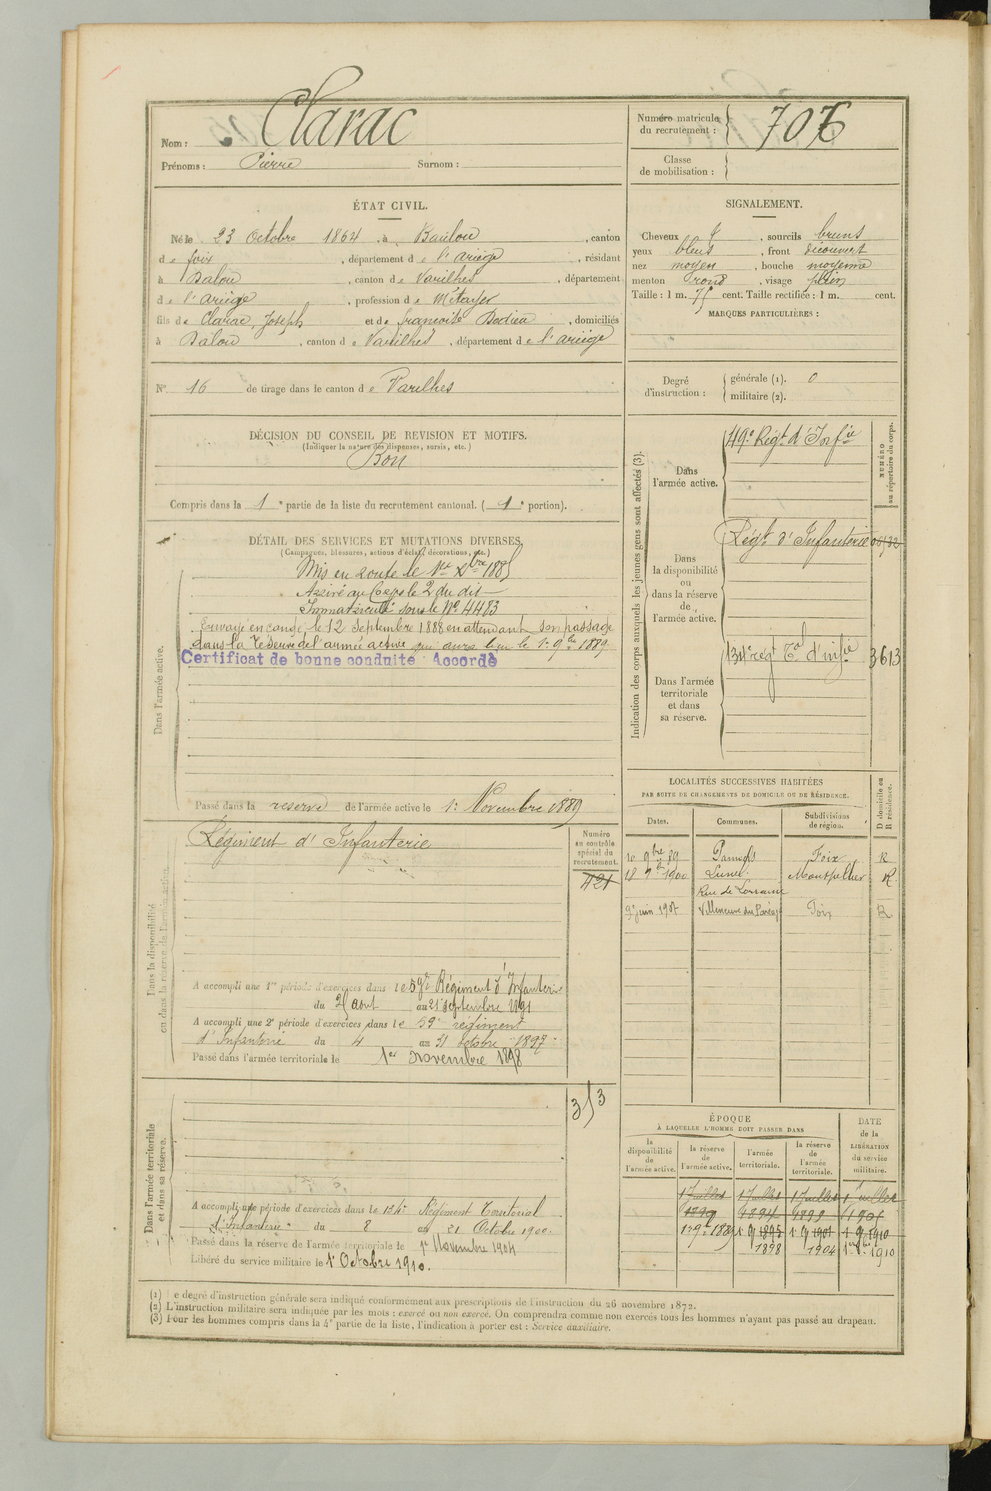 Nom : Clarac
Prénoms : Pierre Surnom :
Numéro matricule du recrutement : 706
Classe de mobilisation :
ÉTAT CIVIL.
Né le 23 Octobre 1864, à Baulou, canton
de foix, département de l'ariège, résidant
à Dalou, canton de Varilhes, département
de l'ariège, profession de Métayer
fils de Clarac, Joseph et de françoise Dedieu, domiciliés
à Dalou, canton de Varilhes, département de l'ariège
N° 16 de tirage dans le canton de Varilhes
DÉCISION DU CONSEIL DE REVISION ET MOTIFS.
(Indiquer la nature des dispenses, sursis, etc.)
Bon
Compris dans la 1e partie de la liste du recrutement cantonal. (1e portion).
DÉTAIL DES SERVICES ET MUTATIONS DIVERSES.
(Campagnes, blessures, actions d'éclat, décorations, etc.)
Dans l'armée active.
Mis en route le 1er Xbre 1885
Arrivé au Corps le 2 du dit
Immatriculé sous le N° 4483
Envoyé en congé le 12 Septembre 1888 en attendant son passage
dans la réserve de l'armée active qui aura lieu le 1er 9bre 1889
Certificat de bonne conduite Accordé
Passé dans la réserve de l'armée active le 1er Novembre 1889
Dans la disponibilité ou dans la réserve de l'armée active.
Régiment d'Infanterie
Numéro au contrôle spécial du recrutement.
421
A accompli une 1re période d'exercices dans le 59e Régiment d'Infanterie
du 25 aout au 21 septembre 1891
A accompli une 2e période d'exercices dans le 59e régiment
d'Infanterie du 4 au 31 octobre 1897
Passé dans l'armée territoriale le 1er novembre 1898
Dans l'armée territoriale et dans sa réserve.
353
A accompli une période d'exercices dans le 134e Régiment Territorial
d'Infanterie du 8 au 21 Octobre 1900.
Passé dans la réserve de l'armée territoriale le 1er Novembre 1904
Libéré du service militaire le 1er Octobre 1910.
SIGNALEMENT.
Cheveux et, sourcils bruns
yeux bleus, front découvert
nez moyen, bouche moyenne
menton rond, visage plein
Taille : 1 m. 75 cent. Taille rectifiée : 1 m. cent.
MARQUES PARTICULIÈRES :
Degré d'instruction :
générale (1). 0
militaire (2).
Indication des corps auxquels les jeunes gens sont affectés (3).
NUMÉRO au répertoire du corps.
Dans l'armée active.
49e Régt d'Infie
Dans la disponibilité ou dans la réserve de l'armée active.
Régt d'Infanterie
Dans l'armée territoriale et dans sa réserve.
134e régt Tal d'infie 3613
LOCALITÉS SUCCESSIVES HABITÉES
PAR SUITE DE CHANGEMENTS DE DOMICILE OU DE RÉSIDENCE.
Dates. Communes. Subdivisions de région. D domicile ou R résidence.
10 9bre 89 Pamiers Foix R
18 9bre 1900 Lunel Montpellier R
Rue de Lorraine
9 juin 1907 Villeneuve du Paréage Foix R
ÉPOQUE
À LAQUELLE L'HOMME DOIT PASSER DANS
DATE de la LIBÉRATION du service militaire.
la disponibilité de l'armée active. la réserve de l'armée active. l'armée territoriale. la réserve de l'armée territoriale.
1 Juillet 1 Juillet 1 Juillet 1 Juillet
1890 1894 1899 1905
1er 9bre 1889 1 9 1895 1 9 1901 1 9 1910
1898 1904 1er 8bre 1910
(1) Le degré d'instruction générale sera indiqué conformément aux prescriptions de l'instruction du 26 novembre 1872.
(2) L'instruction militaire sera indiquée par les mots : exercé ou non exercé. On comprendra comme non exercés tous les hommes n'ayant pas passé au drapeau.
(3) Pour les hommes compris dans la 4e partie de la liste, l'indication à porter est : Service auxiliaire.